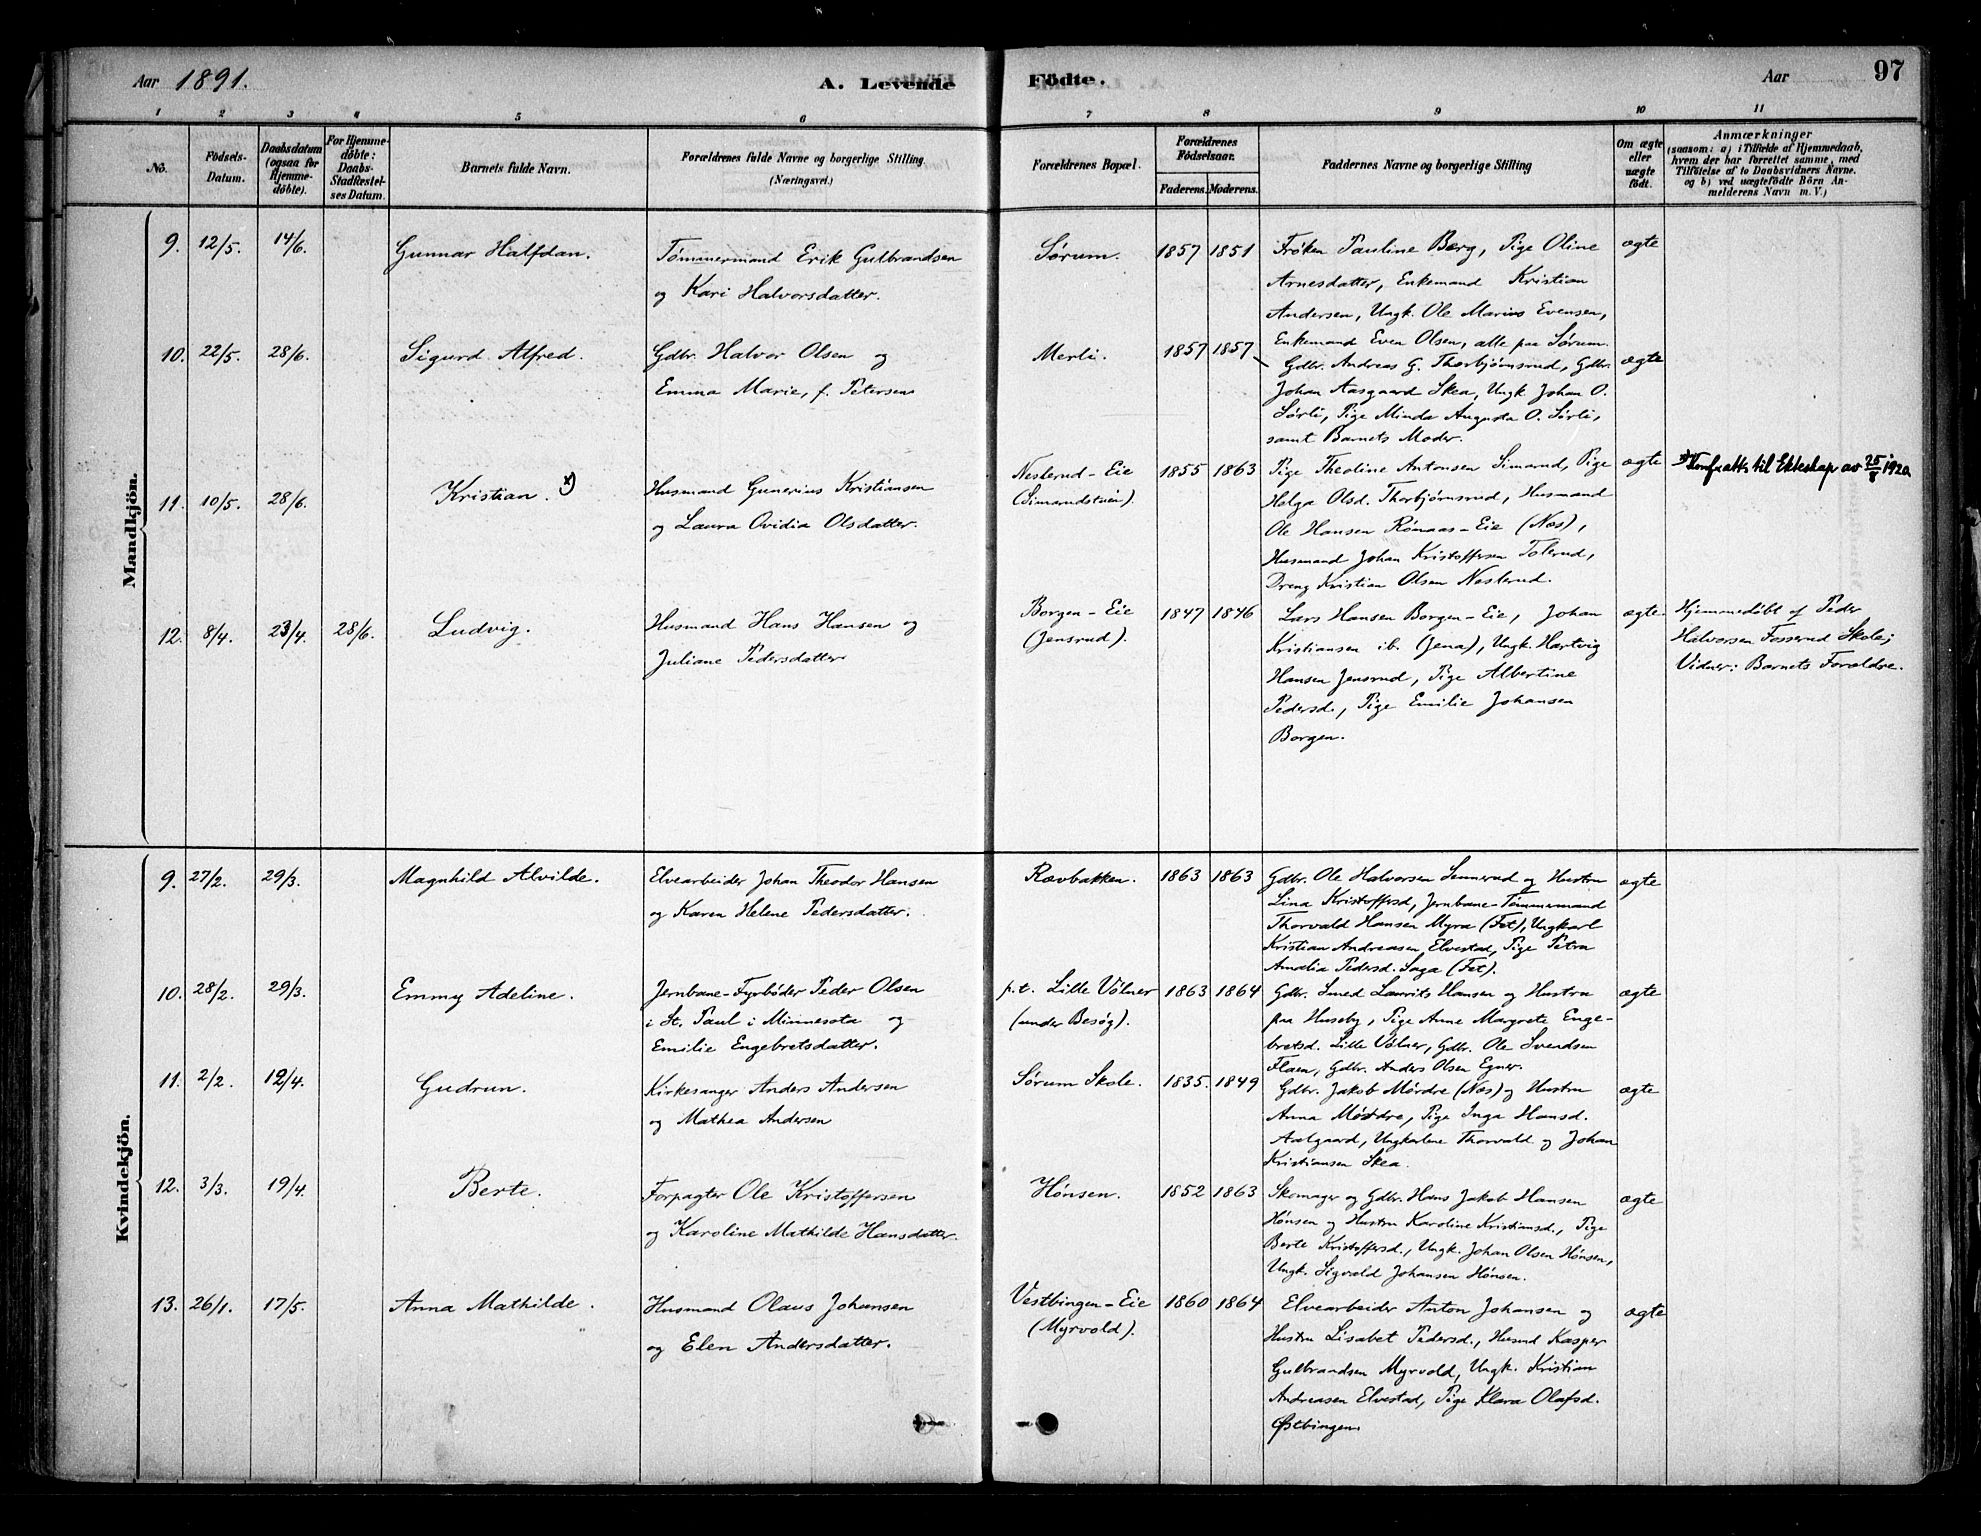 Aar 1891.
A. Levende
Födte.
Aar
97
1 2 3 4 5 6 7 8 9 10 11
No.
Födsels-
Datum.
Daabsdatum
(ogsaa for
Hjemme-
döbte).
For Hjemme-
döbte:
Daabs-
Stadfæstel-
ses Datum.
Barnets fulde Navn.
Forældrenes fulde Navne og borgerlige Stilling.
(Næringsvei.)
Forældrenes Bopæl.
Forældrenes
Födselsaar.
Faderens. Moderens.
Faddernes Navne og borgerlige Stilling
Om ægte
eller
uægte
födt.
Anmærkninger
(saasom: a) i Tilfælde af Hjemmedaab,
hvem der har forrettet samme, med
Tilföielse af to Daabsvidners Navne.
og b) ved uægtefödte Börn An-
melderens Navn m. V.)
Mandkjön.
9. 12/5. 14/6.
Gunnar Halfdan.
Tømmermand Erik Gulbrandsen
og Kari Halvorsdatter.
Sørum.
1857 1851
Frøken Pauline Berg, Pige Oline
Arnesdatter, Enkemand Kristian
Andersen, Ungk. Ole Marius Evensen,
Enkemand Even Olsen, alle paa Sørum.
ægte
10. 22/5. 28/6.
Sigurd Alfred.
Gdbr. Halvor Olsen og
Emma Marie, f. Petersen
Merli.
1857 1857
Gdbr. Andreas G. Thorbjørnsrud, Gdbr.
Johan Aasgaard Skea, Ungk. Johan O.
Sørli, Pige Minda Augusta O. Sørli,
samt Barnets Moder.
ægte
11. 10/5. 28/6.
Kristian. x)
Husmand Gunerius Kristiansen
og Laura Ovidia Olsdatter.
Nesterud-Eie
(Simarudstuen).
1855 1863
Pige Theoline Antonsen Simarud, Pige
Helga Olsd. Thorbjørnsrud, Husmand
Ole Hansen Rømaas-Eie (Næs),
Husmand Johan Kristoffersen Tolerud,
Dreng Kristian Olsen Nesterud.
ægte
til Ekteskap av 25/8 1920
12. 8/4. 23/4. 28/6.
Ludvig.
Husmand Hans Hansen og
Juliane Pedersdatter
Borgen-Eie
(Jensrud).
1847 1846
Lars Hansen Borgen-Eie, Johan
Kristiansen ib. (Jena), Ungk. Hartvig
Hansen Jensrud, Pige Albertine
Pedersd., Pige Emilie Johansen
Borgen.
ægte
Hjemmedøbt af Peder
Halvorsen Fosserud Skole;
Vidner: Barnets Forældre.
Kvindekjön.
9. 27/2. 29/3.
Magnhild Alvilde.
Elvearbeider Johan Theodor Hansen
og Karen Helene Pedersdatter.
Rævbakken.
1863 1863
Gdbr. Ole Halvorsen Sennerud og Hustru
Lina Kristoffersd, Jernbane-Tømmermand
Thorvald Hansen Myra (Fet), Ungkarl
Kristian Andreasen Elvestad, Pige Petra
Amalia Pedersd. Saga (Fet).
ægte
10. 28/2. 29/3.
Emmy Adeline.
Jernbane-Fyrbøder Peder Olsen
i St. Paul i Minnesota og
Emilie Engebretsdatter.
p.t. Lille Vølner
(under Besøg).
1863 1864
Gdbr. Smed Laurits Hansen og Hustru
paa Huseby, Pige Anne Margrete Enge-
bretsd. Lille Vølner, Gdbr. Ole Svendsen
Flaen, Gdbr. Anders Olsen Egner.
ægte
11. 2/2. 12/4.
Gudrun.
Kirkesanger Anders Andersen
og Mathea Andersen
Sørum Skole.
1835. 1849
Gdbr. Jakob Mørdre (Næs) og Hustru
Anna Mørdre, Pige Inga Hansd.
Aalgaard, Ungkarlene Thorvald og Johan
Kristiansen Skea.
ægte
12. 3/3. 19/4.
Berte.
Forpagter Ole Kristoffersen
og Karoline Mathilde Hansdatter.
Hønsen.
1852 1863
Skomager og Gdbr. Hans Jakob Hansen
Hønsen og Hustru Karoline Kristiansd., Pige
Berte Kristoffersd., Ungk. Johan Olsen Hønsen,
Ungk. Sigvald Johansen Hønsen.
ægte
13. 26/1. 17/5.
Anna Mathilde.
Husmand Olaus Johansen
og Elen Andersdatter.
Vestbingen-Eie
(Myrvold).
1860 1864
Elvearbeider Anton Johansen og
Hustru Lisabet Pedersd., Husmd Kasper
Gulbrandsen Myrvold, Ungk. Kristian
Andreasen Elvestad, Pige Klara Olafsd.
Østbingen.
ægte